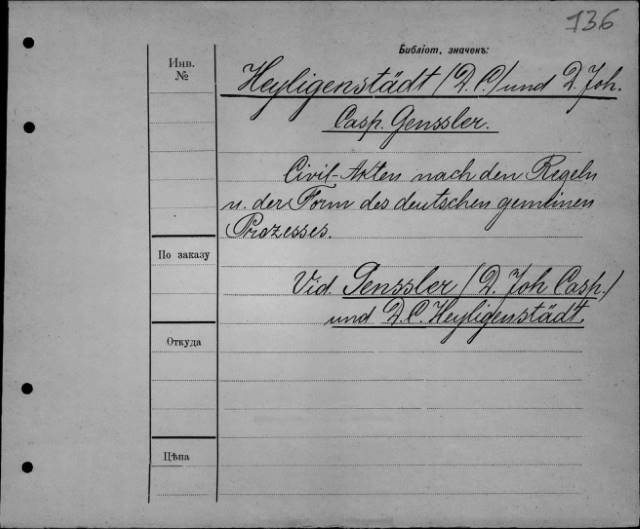 736
Библіот. значекъ:
Инв.
№
Heyligenstädt (D. C.) und D. Joh.
Casp. Genssler.
Civil-Akten nach den Regeln
u. der Form des deutschen gemeinen
Prozesses.
По заказу
Vid. Genssler (D. Joh Casp.)
und D. C. Heyligenstädt.
Откуда
Цѣна